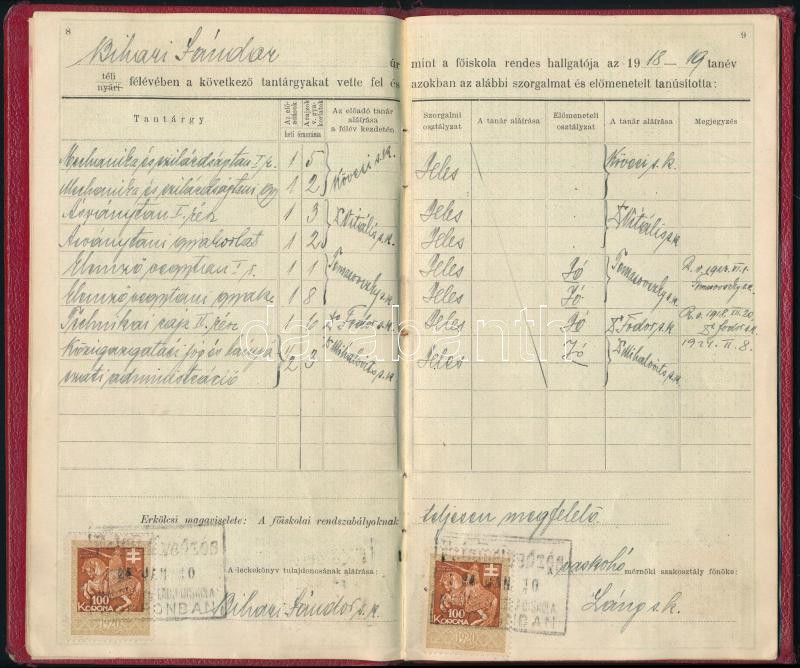 8
9
Bihari Sándor úr mint a főiskola rendes hallgatója az 1918-19 tanév
téli
nyári félévében a következő tantárgyakat vette fel és azokban az alábbi szorgalmat és előmenetelt tanúsította:
Tantárgy
Az elő-
adások
A rajzok
v. gya-
korlatok
heti óraszáma
Az előadó tanár
aláírása
a félév kezdetén
Szorgalmi
osztályzat
A tanár aláírása
Előmeneteli
osztályzat
A tanár aláírása
Megjegyzés
Mechanika és szilárdságtan I. r. 1 5 Kövesi s.k. Jeles Kövesi s.k.
Mechanika és szilárdságtani gy 1 2
Ásványtan I. rész 1 3 Dr Vitális s.k. Jeles Dr Vitális s.k.
Ásványtani gyakorlat 1 2 Jeles
Elemző vegytan I r. 1 1 Jeles Jó
Elemző vegytani gyak 1 8 Jeles Jó
Technikai rajz II. rész 1 6 Dr Fodor s.k. Jeles Jó Dr Fodor s.k. Dr Fodor s.k.
Közigazgatási jog és bányá- 2 3 Dr Mihalovits s.k. Jeles Jó Dr Mihalovits s.k. 1921. II. 8.
szati adminisztráció
darabanth
Erkölcsi magaviselete: A főiskolai rendszabályoknak teljesen megfelelő.
A leckekönyv tulajdonosának aláírása:
Bihari Sándor s.k.
A vaskohó mérnöki szakosztály főnöke:
Láng s.k.
100
KORONA
1920
JAN 10
100
KORONA
1920
JAN 10